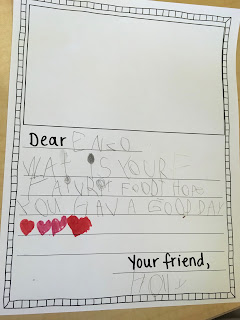 Dear Enzo
WAT IS YOUR
FAIVRIT FOOD? HOPE
YOU HAV A GOOD DAY
Your friend,